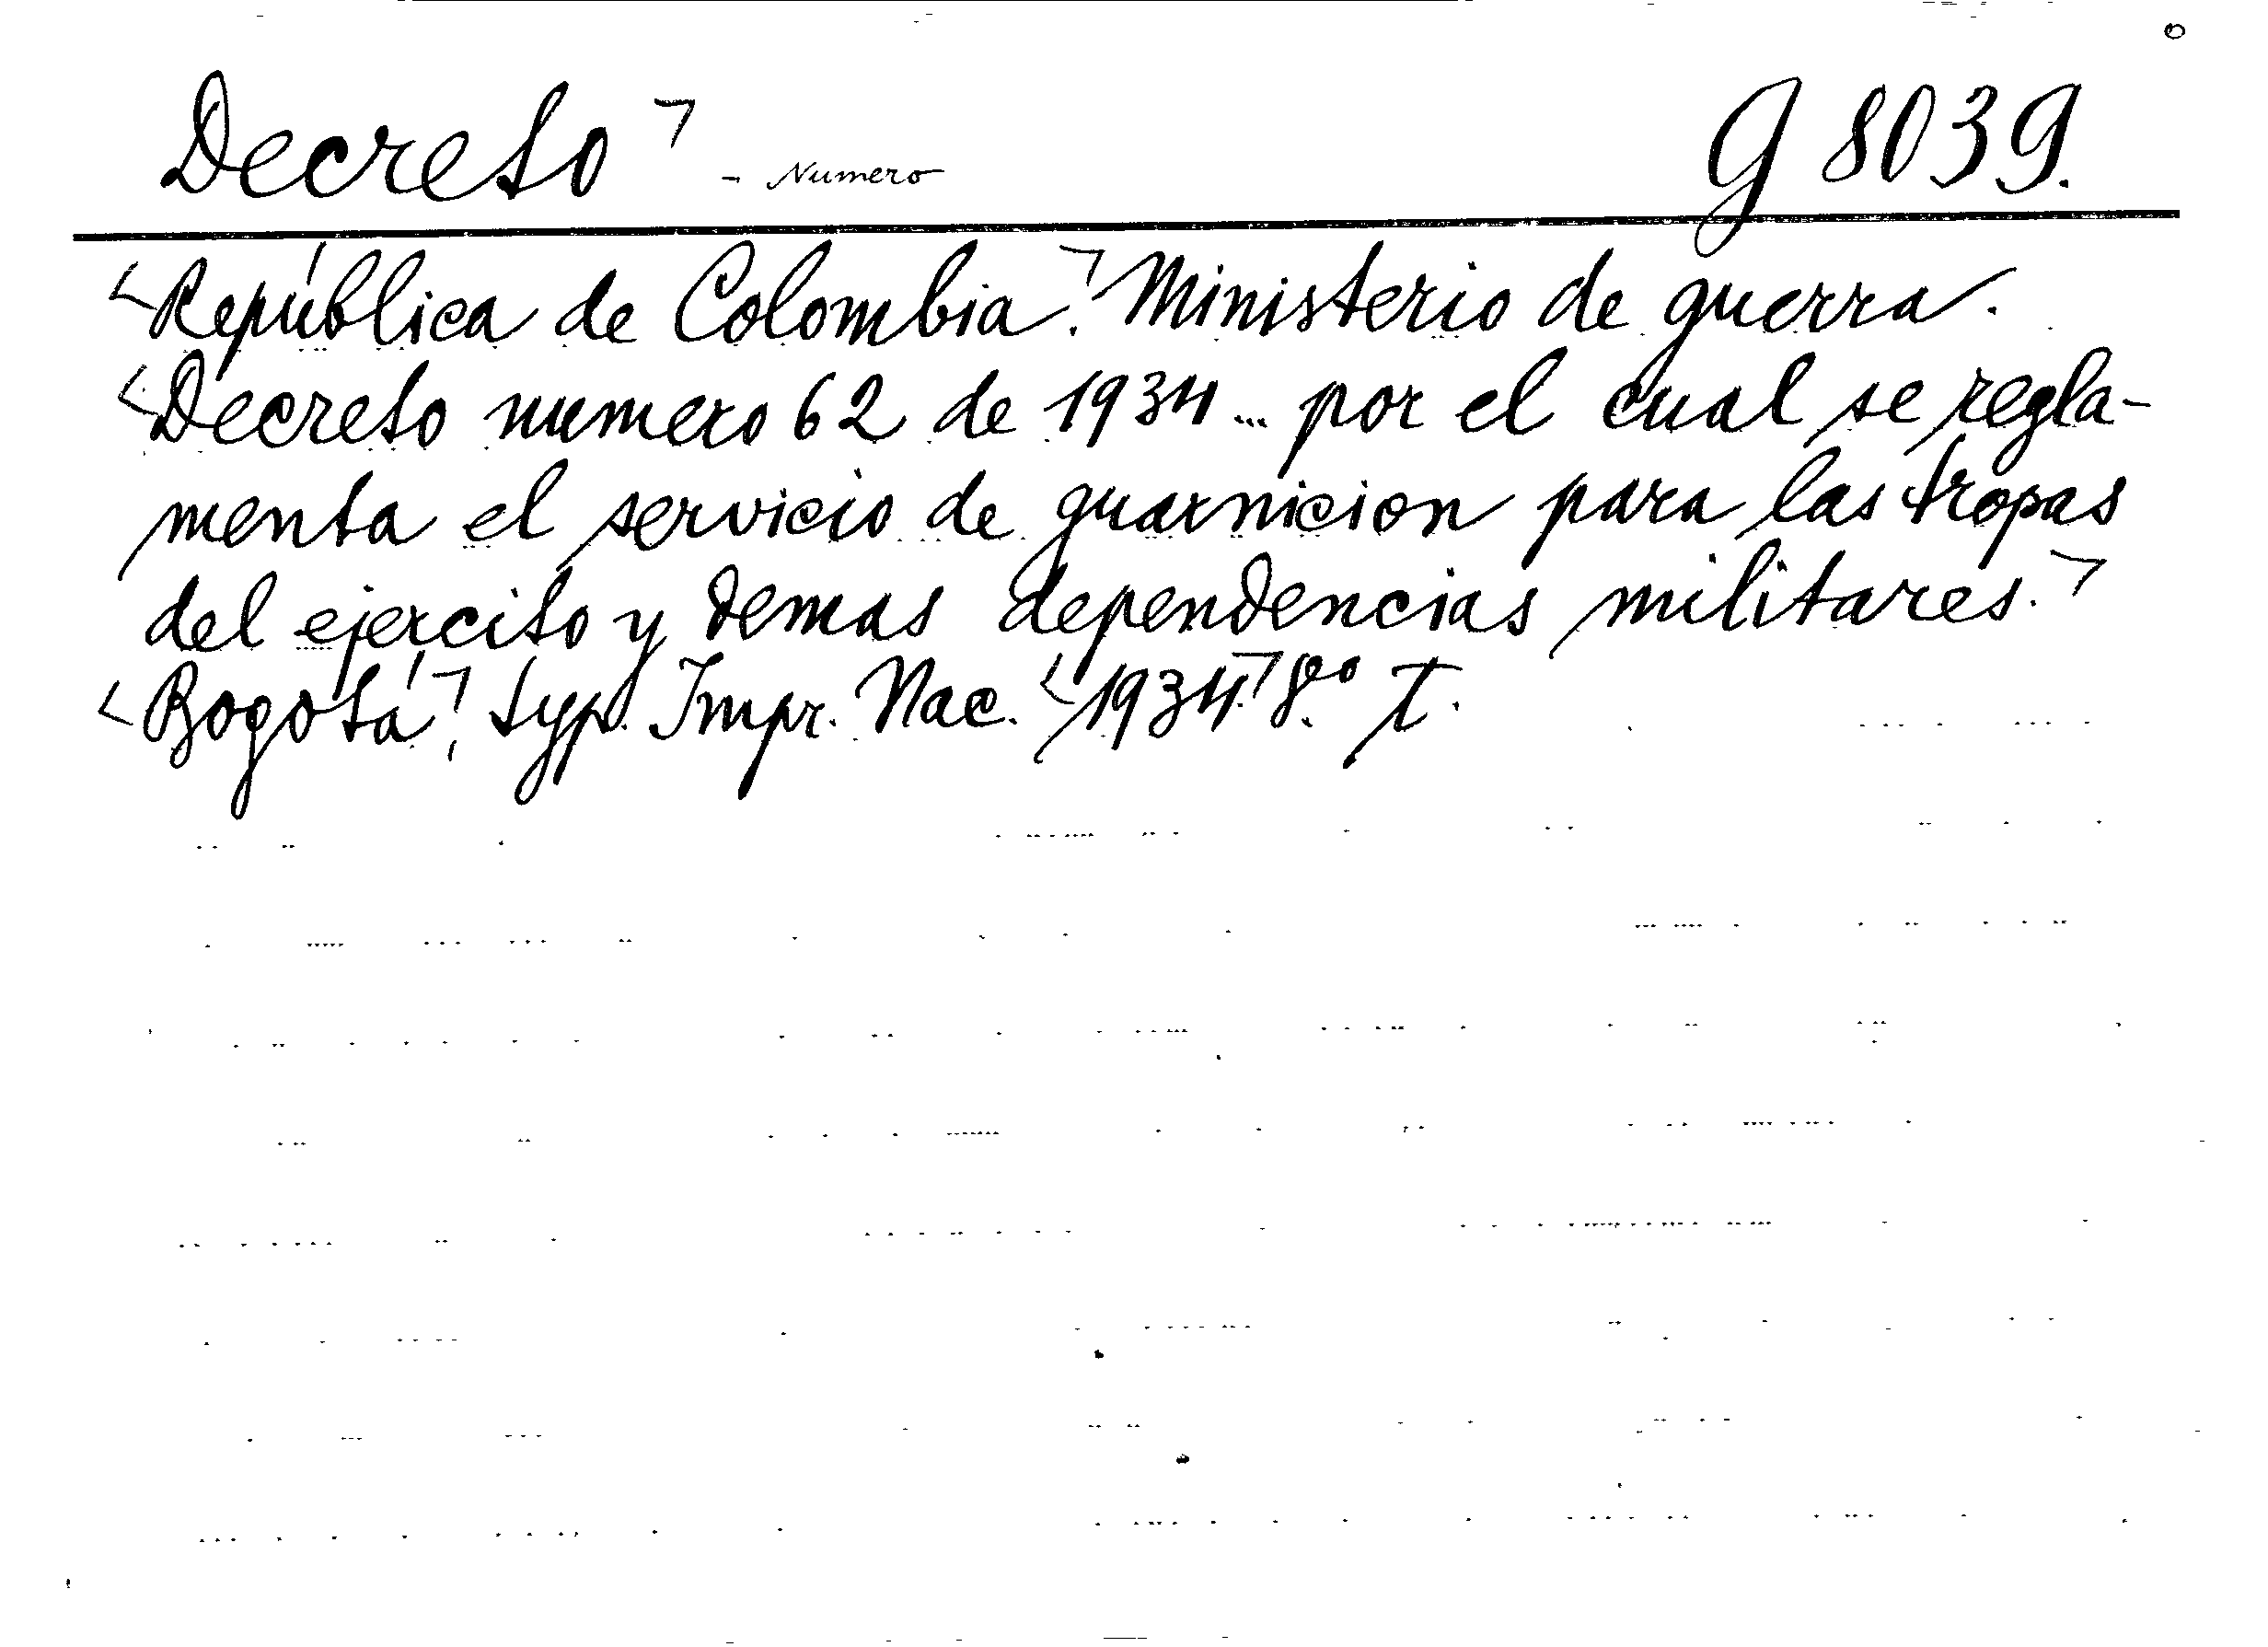 Decreto - Numero G 8039.
República de Colombia. Ministerio de guerra.
Decreto numero 62 de 1934... por el cual se regla-
menta el servicio de guarnicion para las tropas
del ejercito y demas dependencias militares.
Bogotá, typ. Impr. Nac. 1934. 8.º T.